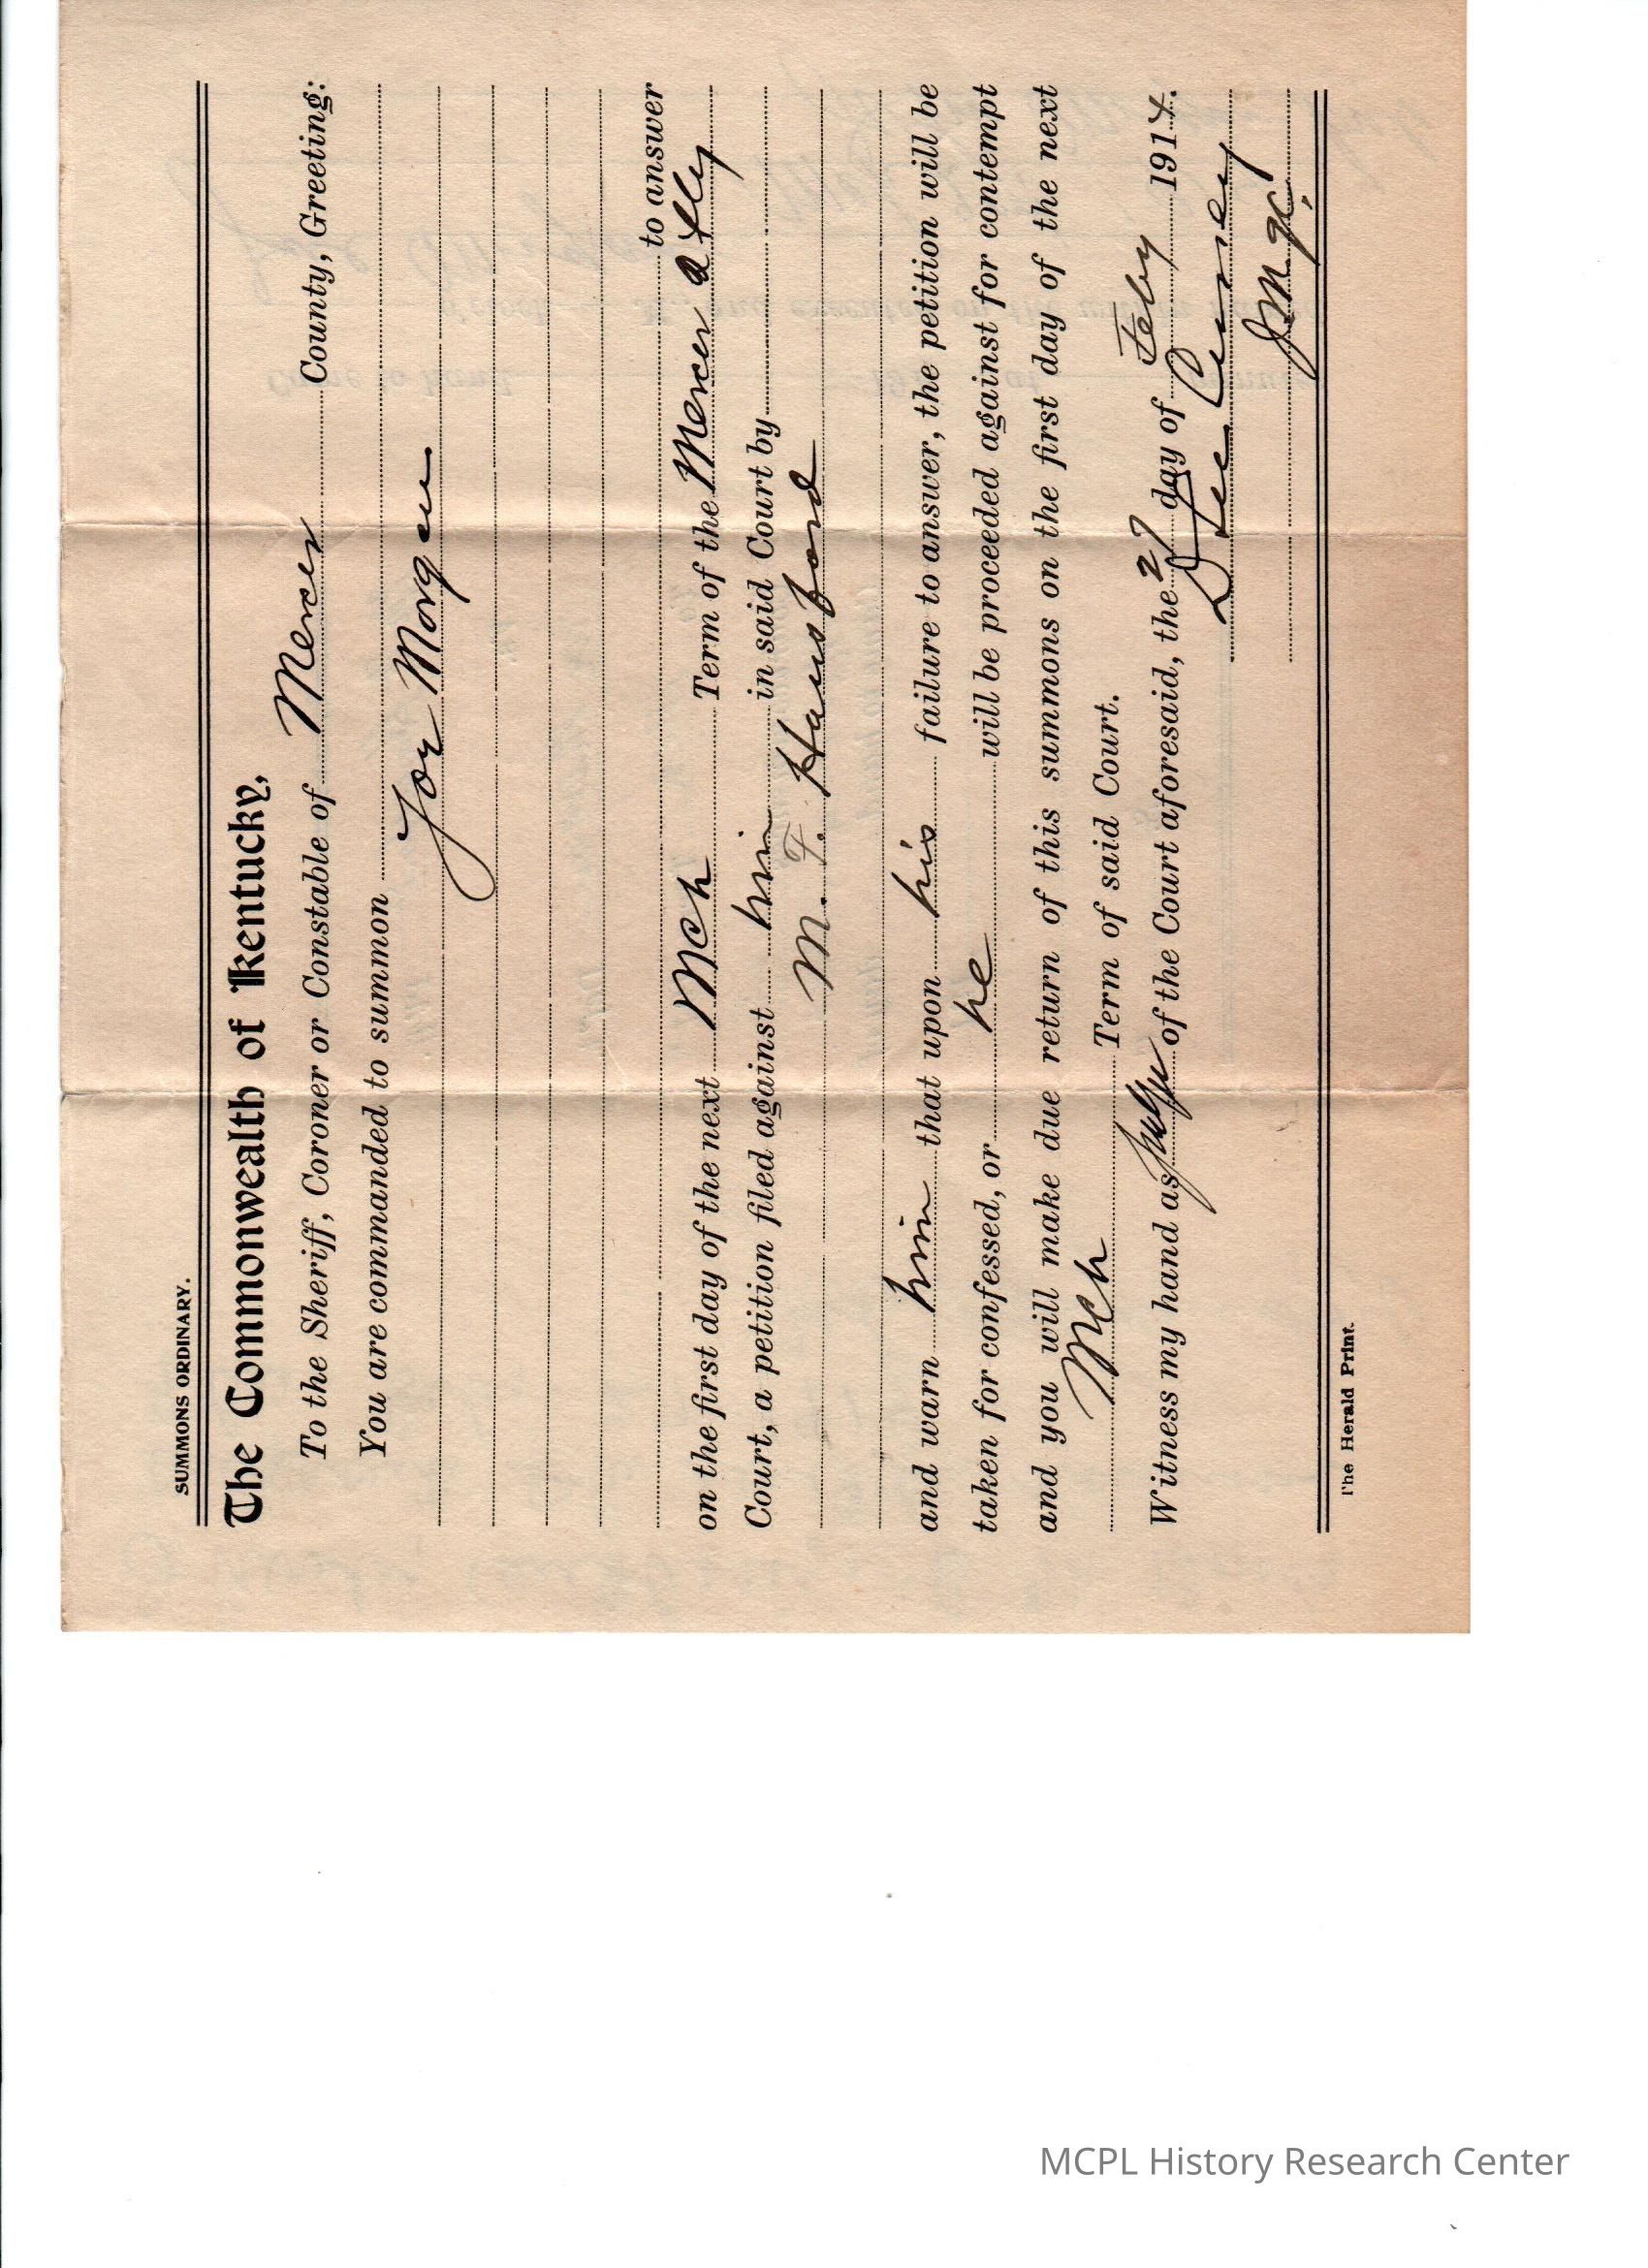 SUMMONS ORDINARY.
The Commonwealth of Kentucky,
To the Sheriff, Coroner or Constable of Mercer County, Greeting:
You are commanded to summon
Joe Morgan
to answer
on the first day of the next Mch Term of the Mercer Qtly
Court, a petition filed against him in said Court by
M. F. Hansford
and warn him that upon his failure to answer, the petition will be
taken for confessed, or he will be proceeded against for contempt
and you will make due return of this summons on the first day of the next
Mch Term of said Court.
Witness my hand as Judge of the Court aforesaid, the 27 day of Feby 1914.
Curry
The Herald Print.
MCPL History Research Center